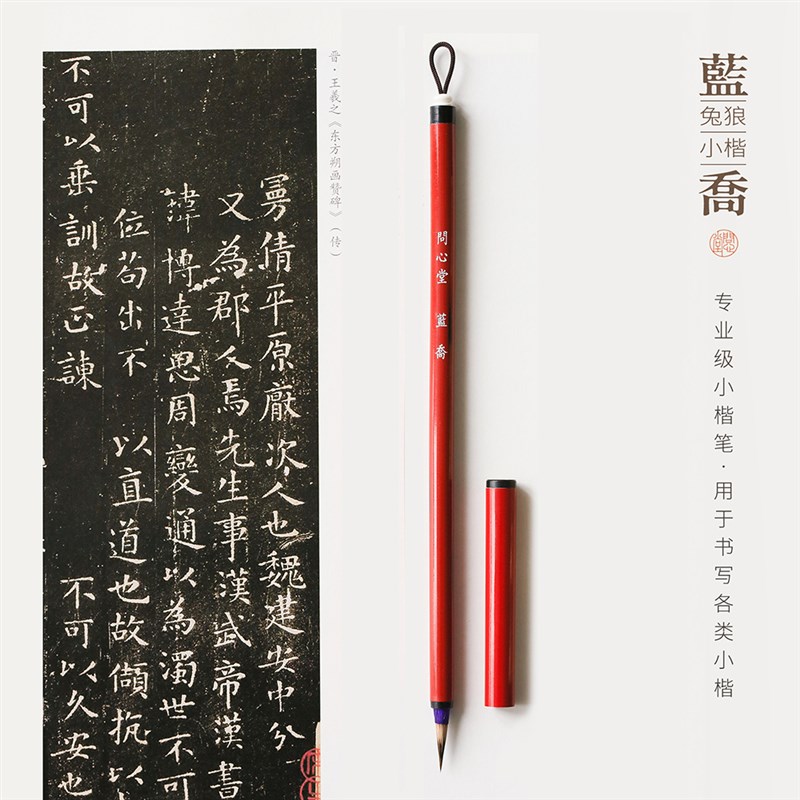 藍喬
兔狼
小楷
专业级小楷笔·用于书写各类小楷
問心堂 藍喬
晋·王羲之《东方朔画赞碑》（传）
曼倩平原厭次人也魏建安中分
又為郡人焉先生事漢武帝漢書
諱博達思周變通以為濁世不可
位苟出不 以直道也故傾抗以
不可以垂訓故正諫 不可以久安也